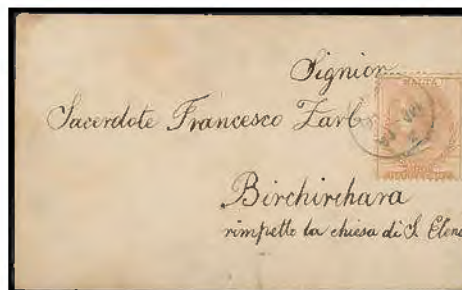 Signior
Sacerdote Francesco Zarb
MALTA
Birchirchara
rimpetto la chiesa di S. Elena